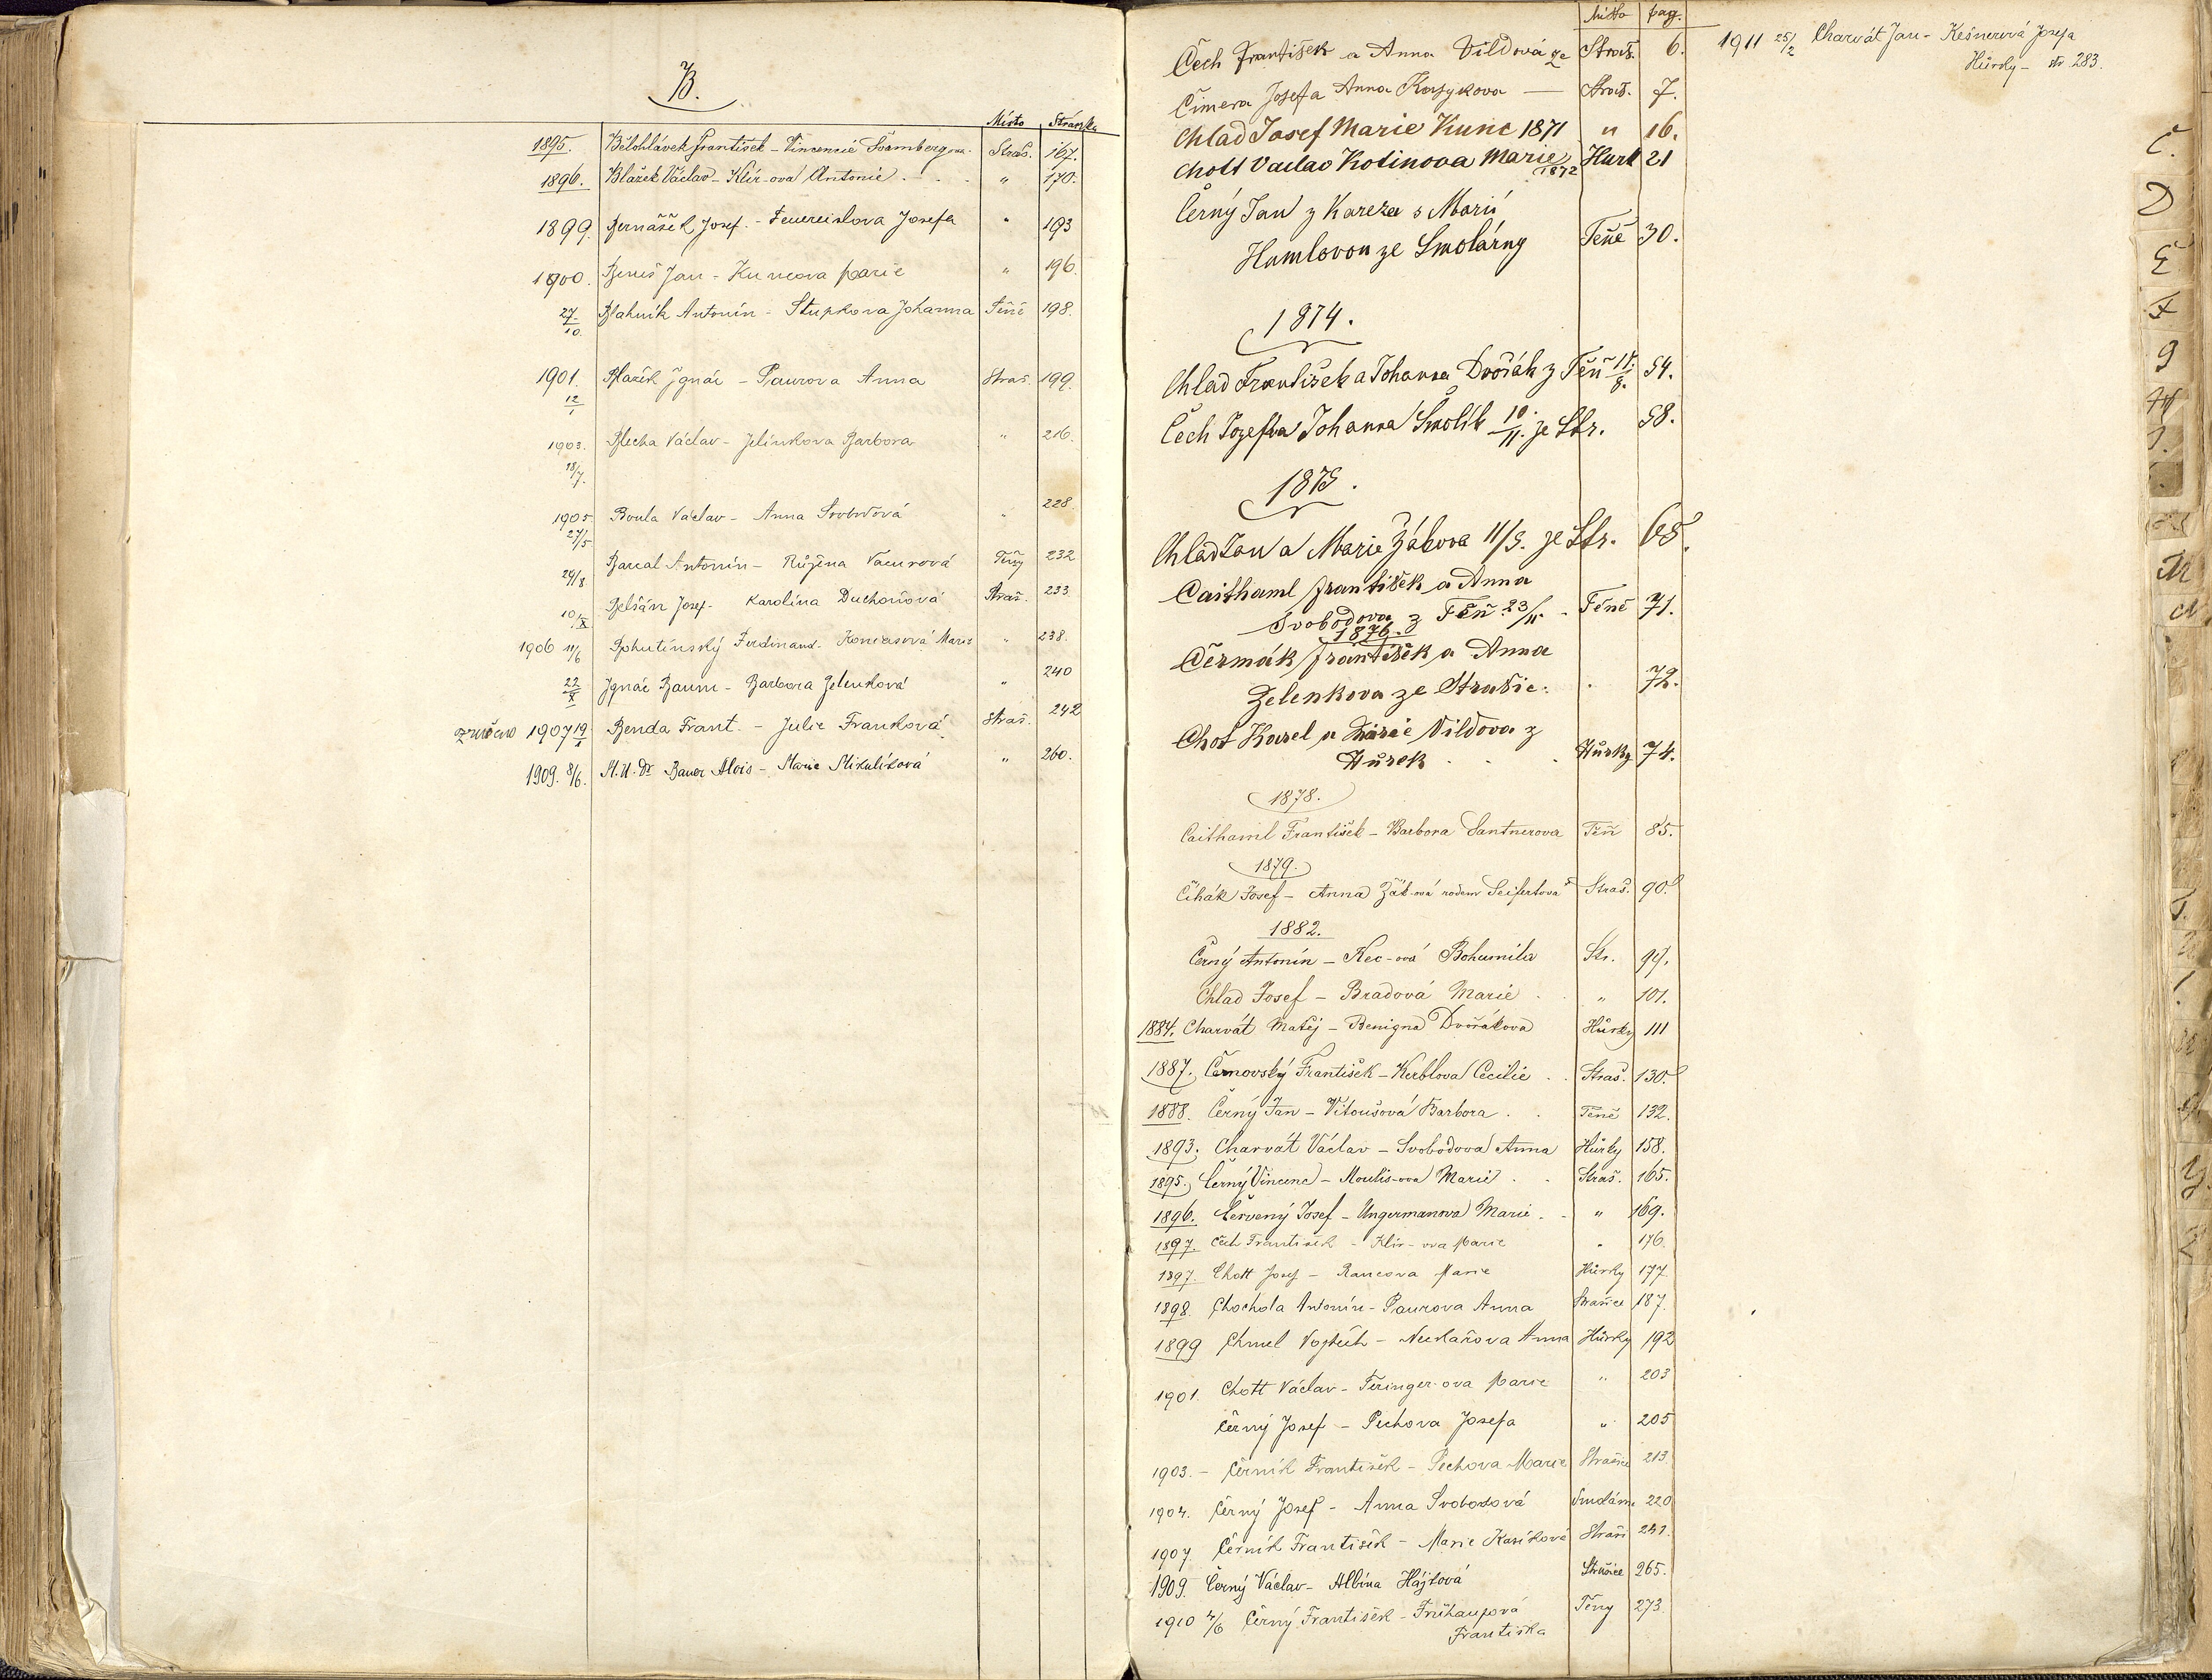 B.
Místo Stránka
1895. Bělohlávek František - Vincencie Šamberg ova. Straš. 167.
1896. Blažek Václav - Klír-ová Antonie . - . " 170.
1899. Bernášek Josef. - Feuereislova Josefa " 193
1900. Beneš Jan - Kuncova Marie " 196.
27/10. Blahník Antonín - Stupkova Johanna Těně 198.
1901. Blažek Ignác - Paurova Anna Straš. 199.
12/1
1903. Blecha Václav - Jelínkova Barbora " 216.
18/7.
1905 Boula Václav - Anna Svobodová " 228
27/5
29/8 Barcal Antonín - Růžena Vacurová Těny 232
10/X Josef - Karolína Duchoňová Straš. 233
1906 11/6 Bohutínský Ferdinand - Marie " 238.
22/X Ignác Baum - Barbora Zelenková " 240
1907 19/1 Benda Frant. - Julie Franková Straš. 242
1909. 8/6. M.U.Dr Bauer Alois - Marie Mikulíková " 260.
Místo pag.
Čech František a Anna Vildová ze Straš. 6.
Čimera Josef a Anna — Straš. 7.
Chlad Josef Marie Kunc 1871 " 16.
Chott Vaclav Kotinova Marie 1872 Hurk 21
Černý Jan z Kareza s Marií
Hamlovou ze Smolárny Těně 30.
1874.
Chlad František a Johanna Dvořák z Těň 8. 54.
Čech Josef a Johanna Smolík 10/11. ze Str. 58.
1875.
Chlad Jan a Marie Žákova 11/5. ze Str. 65.
Caithaml František a Anna
Svobodova z Těň 23/11. - Těně 71.
1876.
Čermák František a Anna
Zelenkova ze Strašic. . 72.
Chot Karel a Marie Vildova z
Hůrek . . . Hůrky 74.
1878.
Caithaml František - Barbora Santnerova Těň 85.
1879.
Čihák Josef - Anna Žák-ová rodem Seifertova Straš. 90.
1882.
Černý Antonín - Kec-ová Bohumila Str. 99.
Chlad Josef - Bradová Marie . " 101.
1884. Charvát Matěj - Benigna Dvořákova Hůrky 111
1887. Černovský František - Kerblova Cecilie . . Straš. 130.
1888. Černý Jan - Vitoušová Barbora . . Těně 132.
1893. Charvát Václav - Svobodova Anna Hůrky 158.
1895. Černý Vincenc - Moulis-ova Marie . . Straš. 165.
1896. Červený Josef - Ungermanova Marie . . " 169.
1897. Čech František - Klír-ova Marie " 176.
1897. Chott Josef - Rancova Marie Hůrky 177.
1898. Chochola Antonín - Paurova Anna Strašice 187.
1899 Chmel Vojtěch - Neckařova Anna Hůrky 192
1901. Chott Václav - Feringer-ova Marie " 203
Černý Josef - Pechova Josefa " 205
1903. - Černík František - Pechova Marie Strašice 213.
1904. Černý Josef - Anna Svobodová 220
1907. Černík František - Marie Kasíková Straši 251.
1909. Černý Václav - Albína Hájková Strašice 265.
1910 4/6 Černý František - Frühaufová Těny 273.
Františka
1911 25/2 Charvát Jan - Kešnerová Josefa
Hůrky - str. 283.
Č.
D
E
F
G
H
M